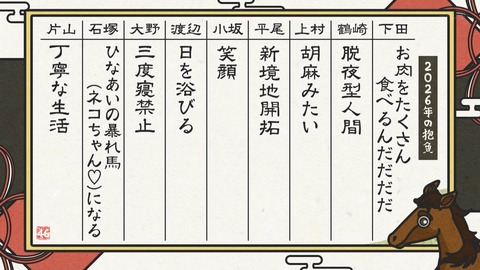 2026年の抱負
下田
お肉をたくさん
食べるんだだだだだ
鶴崎
脱夜型人間
上村
胡麻みたい
平尾
新境地開拓
小坂
笑顔
渡辺
日を浴びる
大野
三度寝禁止
石塚
ひなあいの暴れ馬
(ネコちゃん♡)になる
片山
丁寧な生活